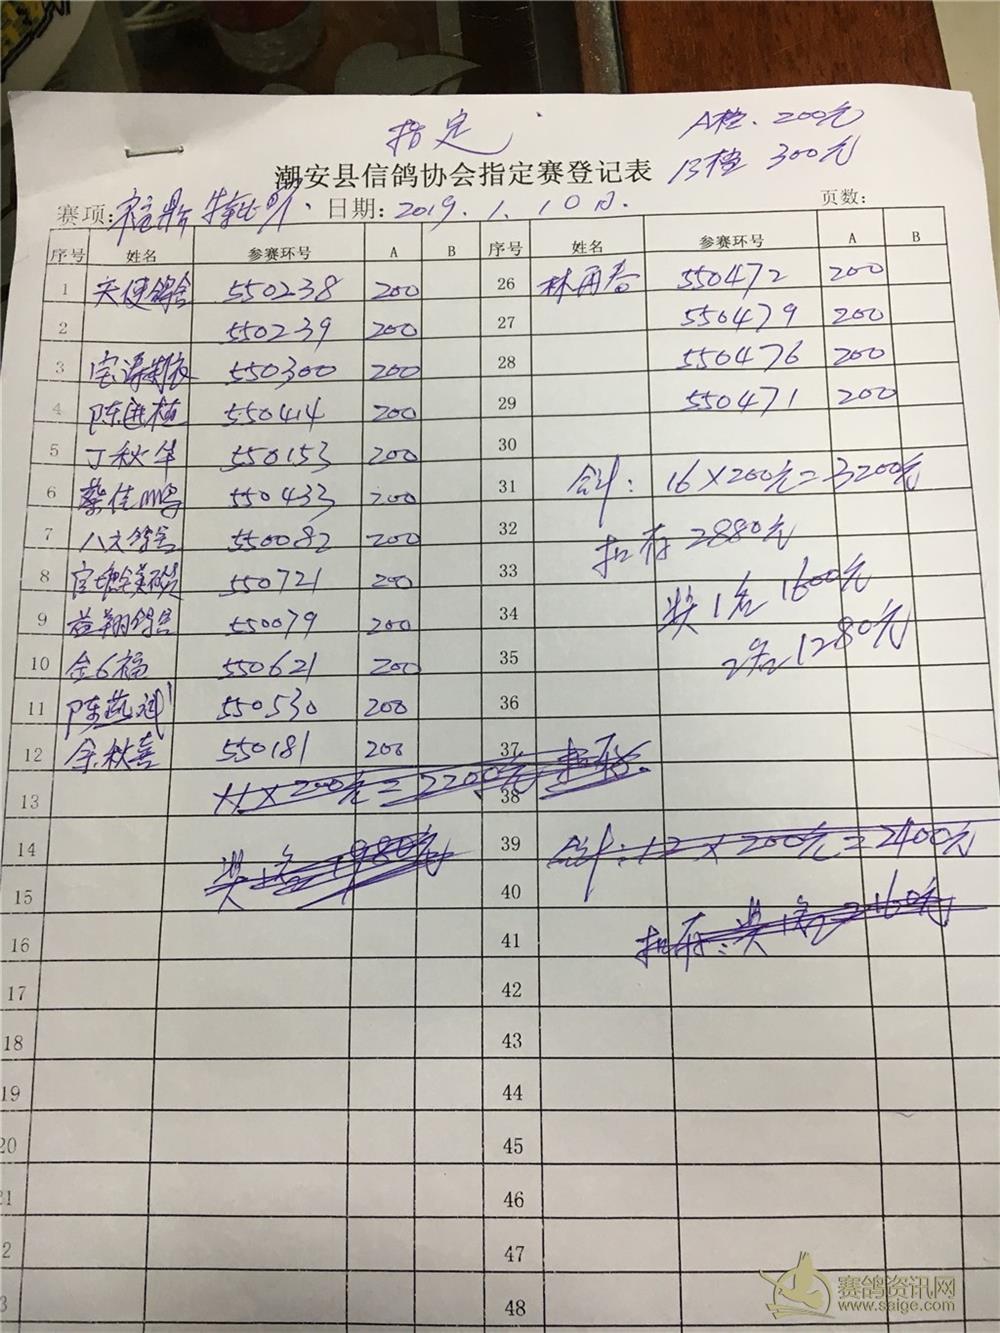 指定
A档.200元
B档 300元
潮安县信鸽协会指定赛登记表
赛项:福鼎特比 日期:2019.1.10日. 页数:
序号 姓名 参赛环号 A B 序号 姓名 参赛环号 A B
1 天使鸽舍 550238 200 26 林再春 550472 200
2 550239 200 27 550479 200
3 宝涛制衣 550300 200 28 550476 200
4 陈进植 550414 200 29 550471 200
5 丁秋华 550153 200 30
6 蔡佳鹏 550433 200 31 合计:16×200元=3200元
7 八文鸽舍 550082 200 32 扣存2880元
8 550721 200 33
9 益翔鸽舍 550079 200 34 奖1名1600元
10 金6福 550621 200 35 2名1280元
11 550530 200 36
12 余秋喜 550181 200 37
13 11×200元=2200元 38
14 奖1名1980元 39 合计:12×200元=2400元
15 40
16 41 扣存:奖1名2160元
17 42
18 43
19 44
20 45
21 46
2 47
3 48
赛鸽资讯网
www.saige.com